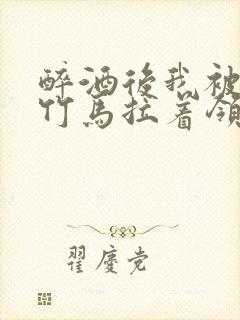 醉酒後我被
竹馬拉着領
翟慶党